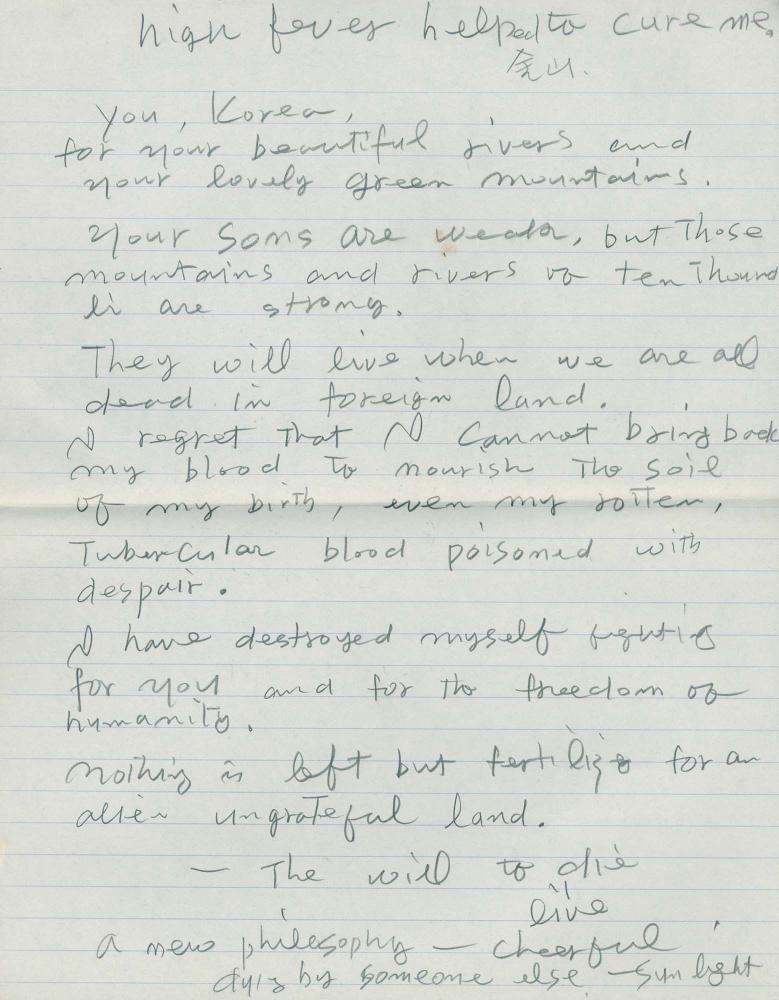 high fever helped to cure me.
金山.
you, Korea,
for your beautiful rivers and
your lovely green mountains.
Your sons are weak, but Those
mountains and rivers of ten Thound
li are strong.
They will live when we are all
dead in foreign land.
I regret That I cannot bring back
my blood To nourish The soil
of my birth, even my rotten,
Tubercular blood poisoned with
despair.
I have destroyed myself fighting
for you and for the freedom of
humanity.
nothing is left but fertilizer for an
alien ungrateful land.
— The will to die
live
a new philosophy — cheerful
dying by someone else — sun light